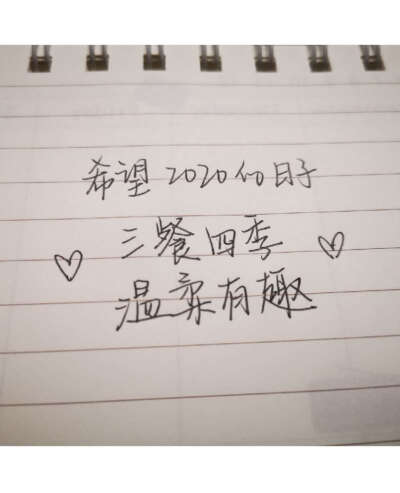 希望2020的日子
三餐四季
温柔有趣